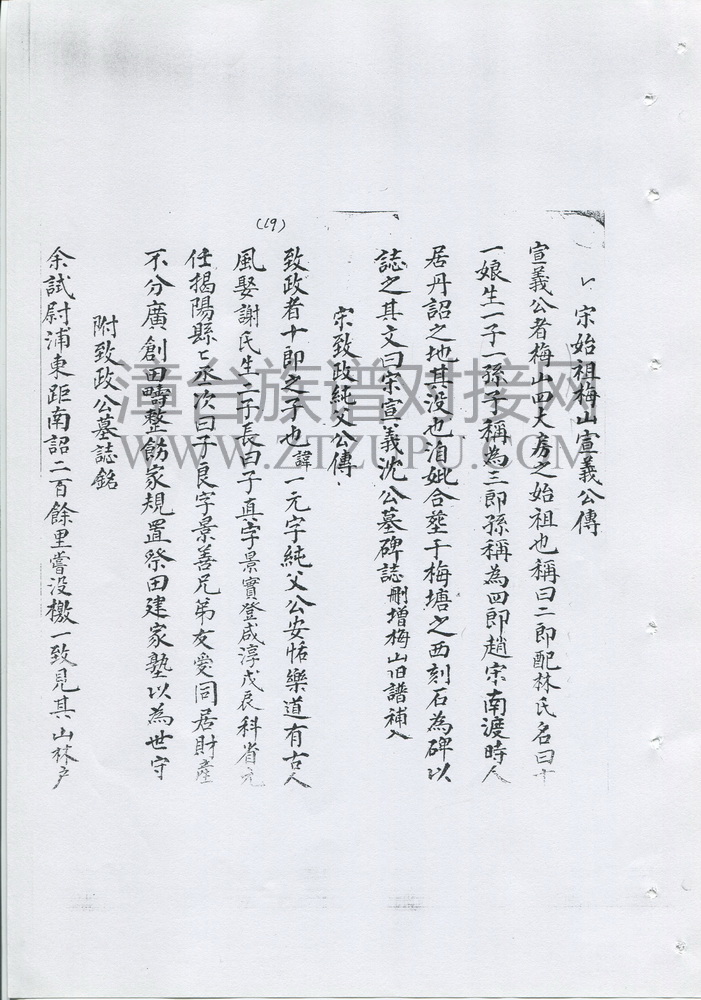 宋始祖梅山宣義公傳
宣義公者梅山四大房之始祖也稱曰二郎配林氏名曰十
一娘生一子一孫子稱為三郎孫稱為四郎趙宋南渡時人
居丹詔之地其没也洎妣合塟于梅塘之西刻石為碑以
誌之其文曰宋宣義沈公墓碑誌刪增梅山旧譜補入
宋致政純父公傳
(19)
致政者十郎之子也諱一元字純父公安恬樂道有古人
風娶謝氏生二子長曰子真字景實登咸淳戊辰科省元
任揭陽縣〻丞次曰子良字景善兄弟友愛同居財產
不分廣創田疇整飭家規置祭田建家塾以為世守
附致政公墓誌銘
余試尉浦東距南詔二百餘里嘗没檄一致見其山林戶
漳台族谱对接网
WWW.ZTZUPU.COM